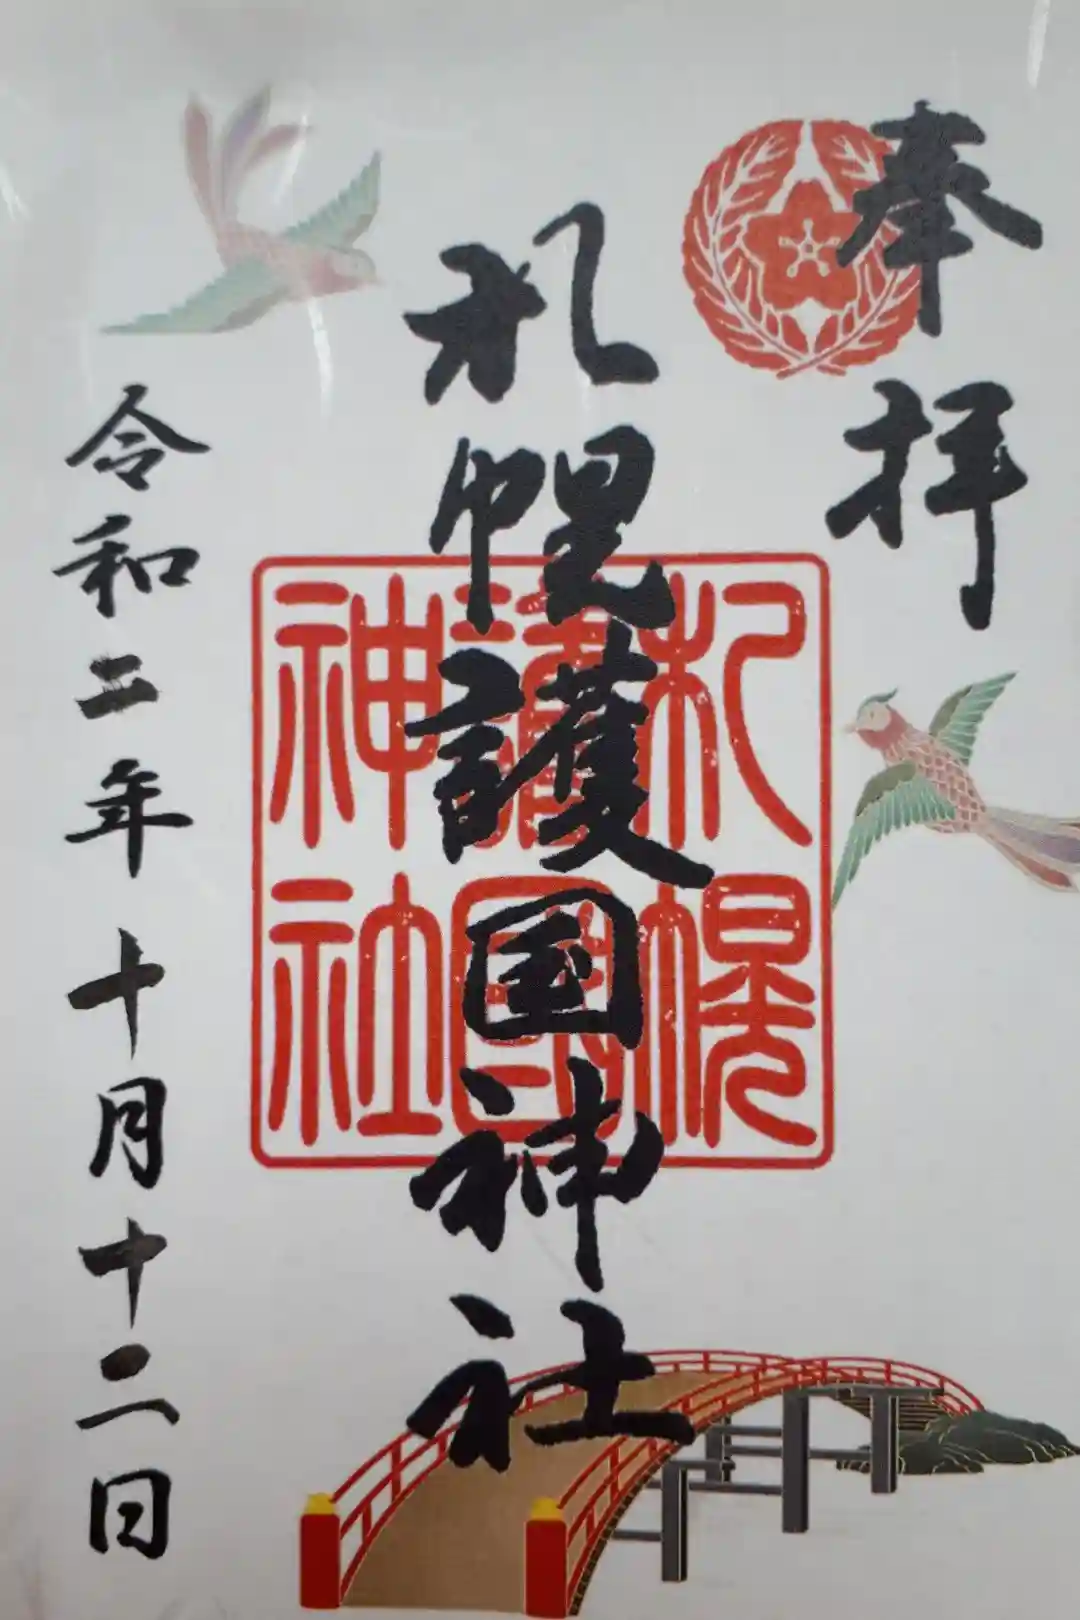 奉拝
札幌護国神社
札幌
護國
神社
令和二年十月十二日